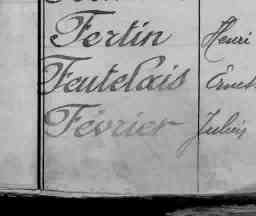 Fertin Henri
Feutelais Ernest
Février Julien